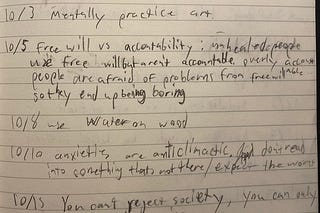 10/3 Mentally practice art.
10/5 free will vs accountability: unhealed people
use free will but arent accountable, overly account
able
people are afraid of problems from free will
so they end up being boring
10/8 use water on wood
10/10 anxieties are anticlimactic, dont read
into something thats not there/expect the worst
10/15 You cant reject society, you can only